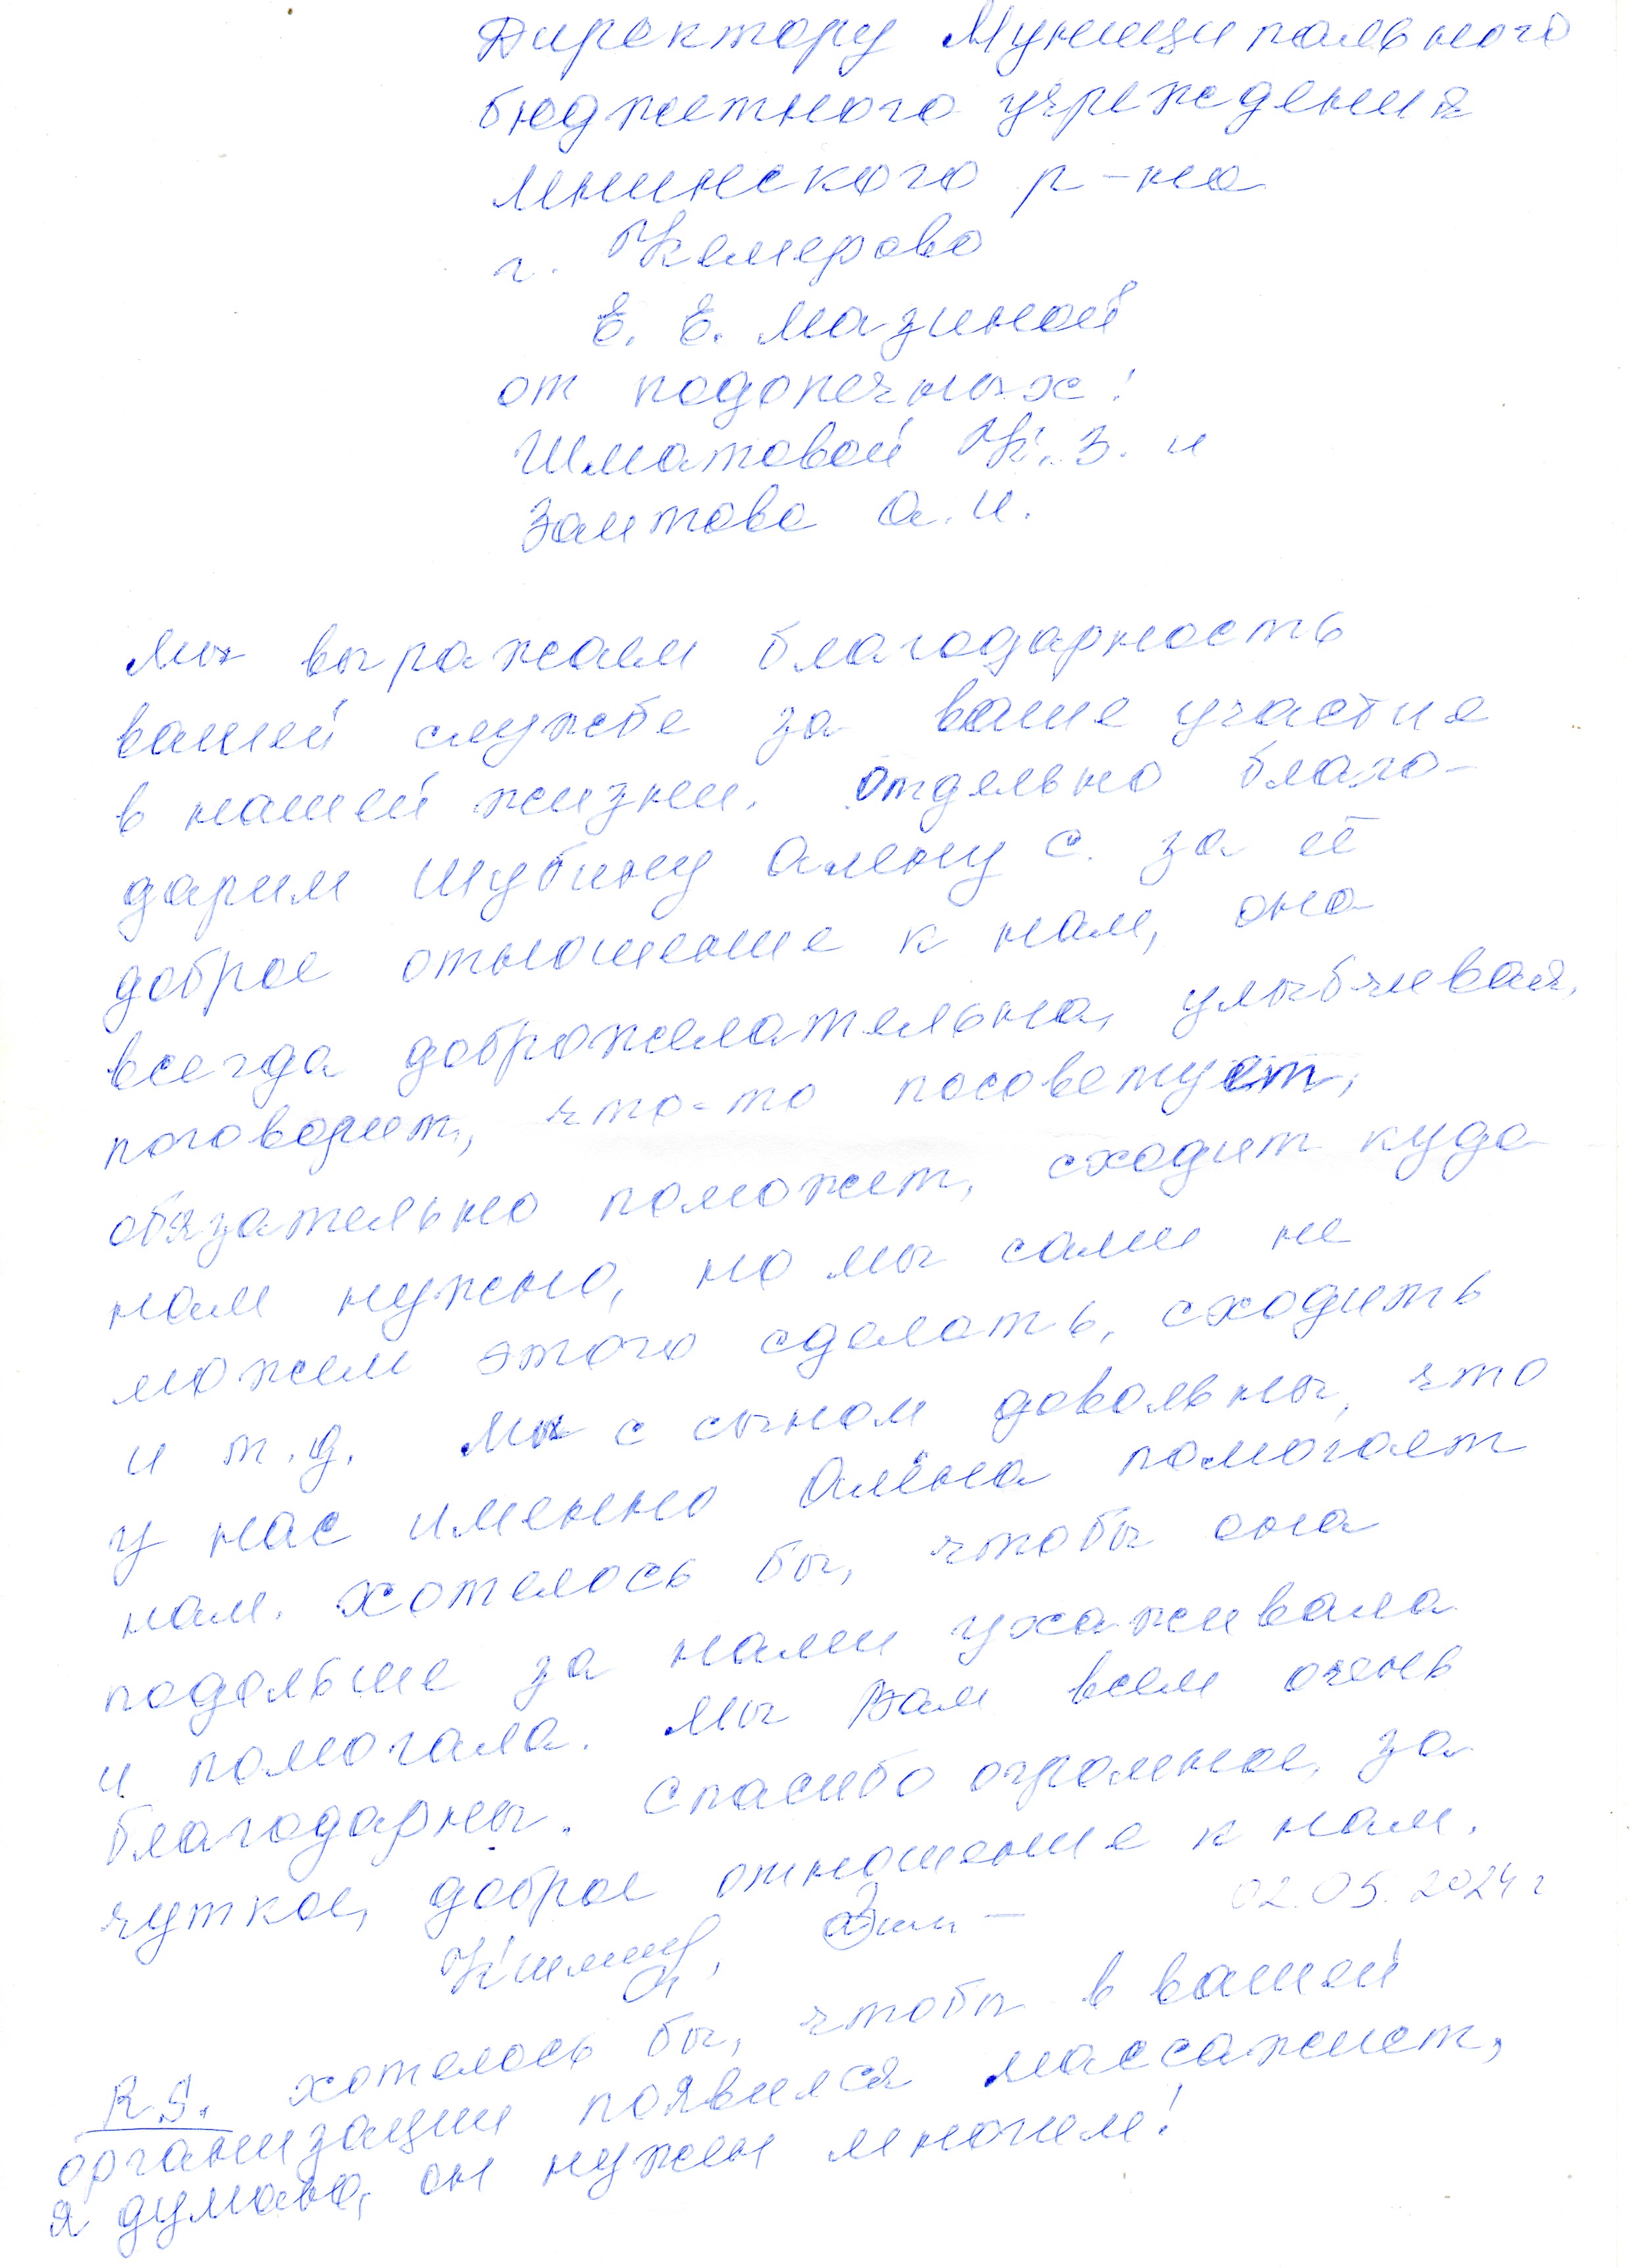 Директору Муниципального
бюджетного учреждения
Ленинского р-на
г. Кемерово
Е. Е. Мазиной
от подопечных:
Шматовой К. З. и
Заитова А. И.
Мы выражаем благодарность
вашей службе за ваше участие
в нашей жизни. Отдельно благо-
дарим Шубину Алёну С. за её
доброе отношение к нам, она
всегда доброжелательна, улыбчивая,
поговорит, что-то посоветует,
обязательно поможет, сходит куда
нам нужно, но мы сами не
можем этого сделать, сходить
и т.д. Мы с сыном довольны, что
у нас именно Алёна помогает
нам. Хотелось бы, чтобы она
подольше за нами ухаживала
и помогала. Мы Вам всем очень
благодарны. Спасибо огромное, за
чуткое, доброе отношение к нам.
02.05.2024 г
P.S. хотелось бы, чтобы в вашей
организации появился массажист,
я думаю, он нужен многим!